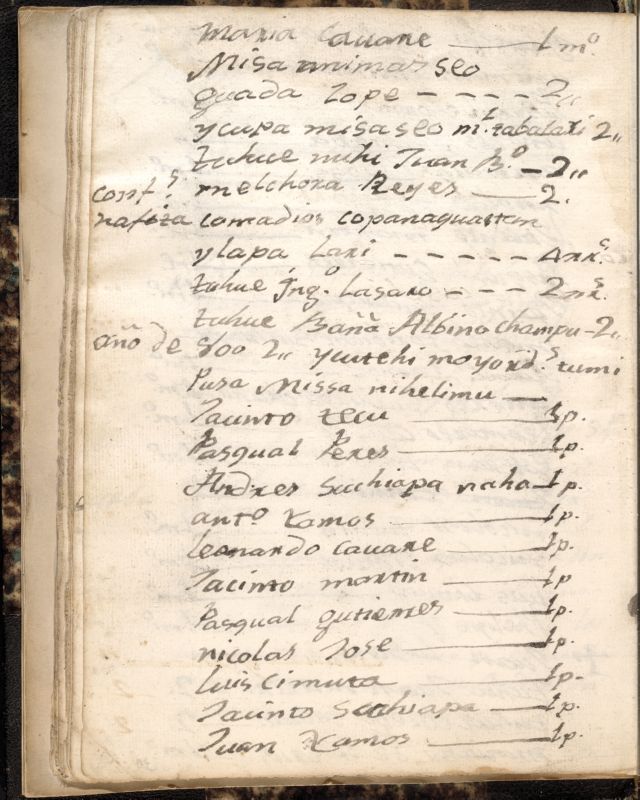 maria Cauare — 1 mo.
Misa animas seo
guada Lope - - - - 2„
ycupa misa seo mt. zabalaxi 2„
tuhue nuhi Juan Bo. - 2„
confs. melchora Reyes — 2.
comadios copanaguastan
ylapa Laxi - - - - - 4 rrs.
tuhue Lasaro - - - 2 rrs.
tuhue Baña Albino champu - 2„
año de 800 2„ ycutchi moyords. tumi
Pusa Missa nihelimu —
Jacinto tecu — 1p.
Pasqual Peres — 1p.
Andres Suchiapa naha — 1p.
anto Ramos — 1p.
leonardo cauare — 1p.
Jacinto martin — 1p
Pasqual gutierres — 1p.
nicolas Jose — 1p.
luis cimuta — 1p.
Jacinto Suchiapa — 1p.
Juan Ramos — 1p.